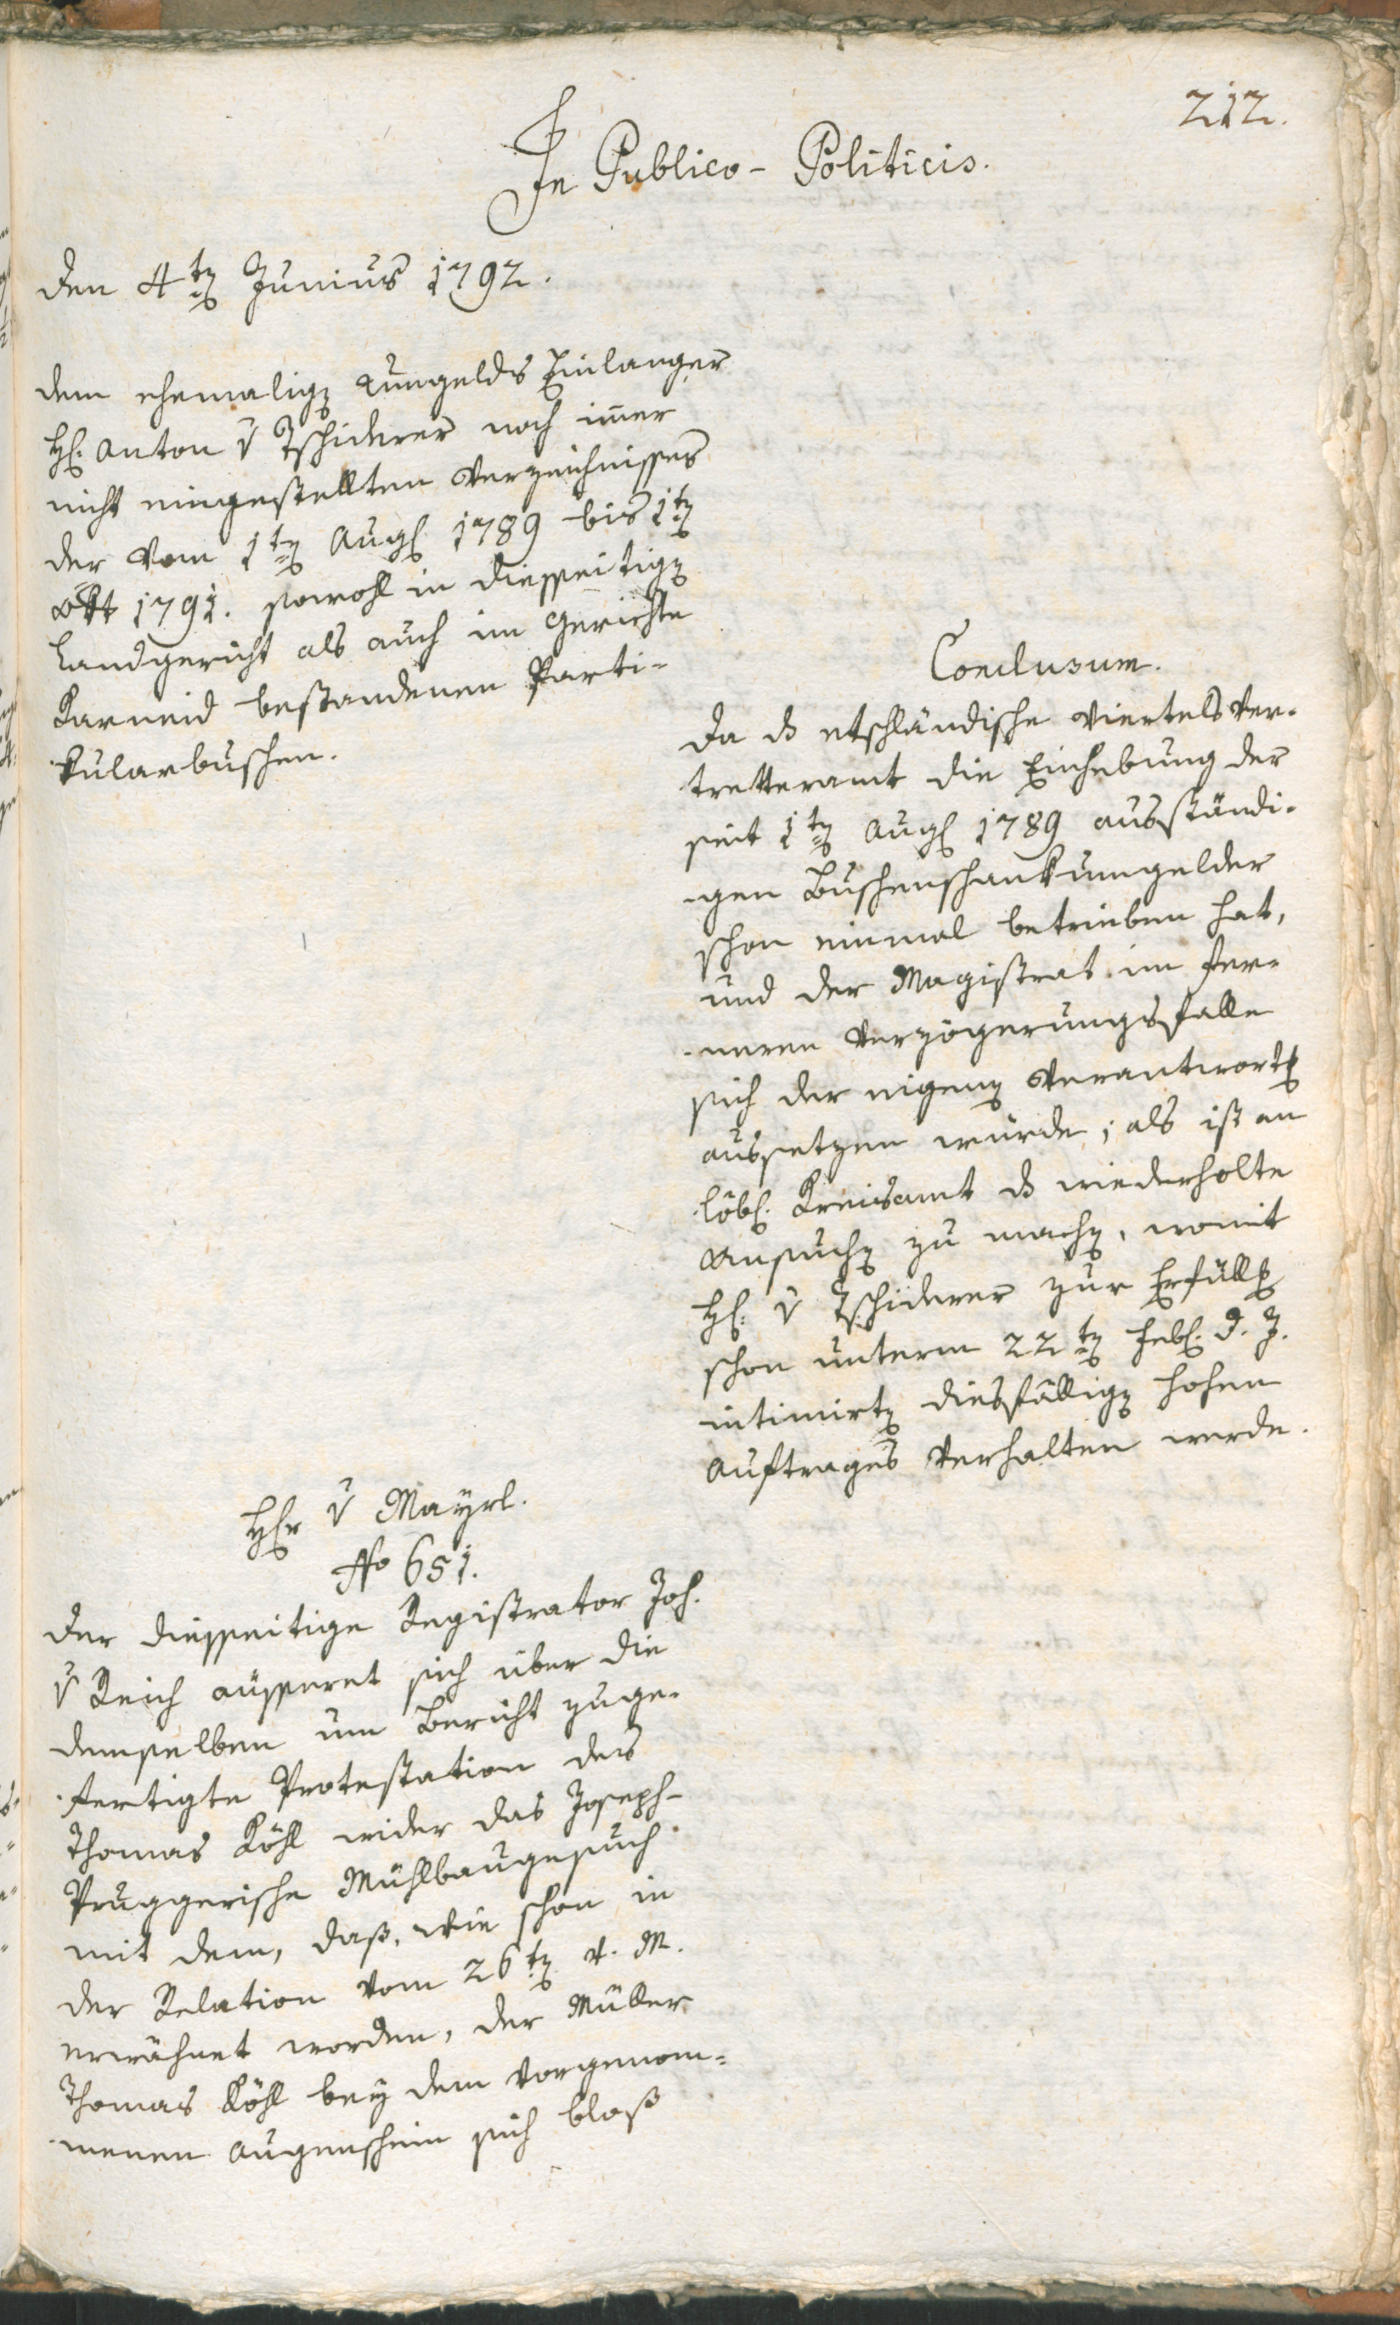 212.
In Publico-Politicis.
den 4ten Junius 1792.
dem ehemaligen Umgelds Einlanger
H. Anton v Tschiderer noch immer
nicht eingestellten Verzeichnisses
der vom 1ten Aug. 1789 bis 1ten
Okt 1791. sowohl in diesseitigen
Landgericht als auch im Gerichte
Karneid bestandenen Parti-
kularbuschen.
Conclusum.
Da ds etschländische Viertelsver-
tretteramt die Einhebung der
seit 1ten Aug. 1789 ausständi-
gen Buschenschankumgelder
schon einmal betrieben hat,
und der Magistrat im fer-
neren Verzögerungsfalle
sich der eigenen Verantwortg
aussetzen würde; als ist an
löbl. Kreisamt ds wiederholte
Ansuchen zu machen, womit
H. v Tschiderer zur Erfüllg
schon unterm 22ten Feb. d. J.
intimirten diesfälligen hohen
Auftrages verhalten werde.
Hr v Mayrl.
No 651.
Der diesseitige Registrator Joh.
v Reich äusseret sich über die
demselben um Bericht zuge-
fertigte Protestation des
Thomas Köhl wider das Joseph-
Pruggerische Mühlbaugesuch
mit dem, daß, wie schon in
der Relation vom 26ten v. M.
erwähnet worden, der Müller
Thomas Köhl bey dem vorgenom-
menen Augenschein sich bloß